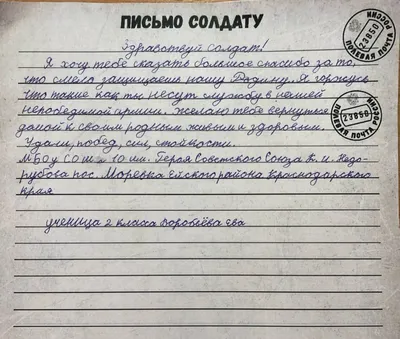 ПИСЬМО СОЛДАТУ
Здравствуй солдат!
Я хочу тебе сказать большое спасибо за то,
что смело защищаешь нашу Родину. Я горжусь
что такие как ты несут службу в нашей
непобедимой армии. Желаю тебе вернуться
домой к своим родным живым и здоровым.
Удачи, побед, сил, стойкости.
МБОУ СОШ № 10 им. Героя Советского Союза К. И. Недо-
рубова пос. Моревка Ейского района Краснодарского
края
ученица 2 класа Воробьёва Ева
ПОЛЕВАЯ ПОЧТА РОССИИ
23850
ПОЛЕВАЯ ПОЧТА РОССИИ
23850